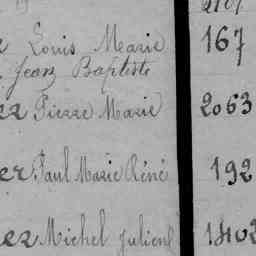 Louis Marie 167
Jean Baptiste
Pierre Marie 2063
Paul Marie Réné 192
Michel Julien 1402